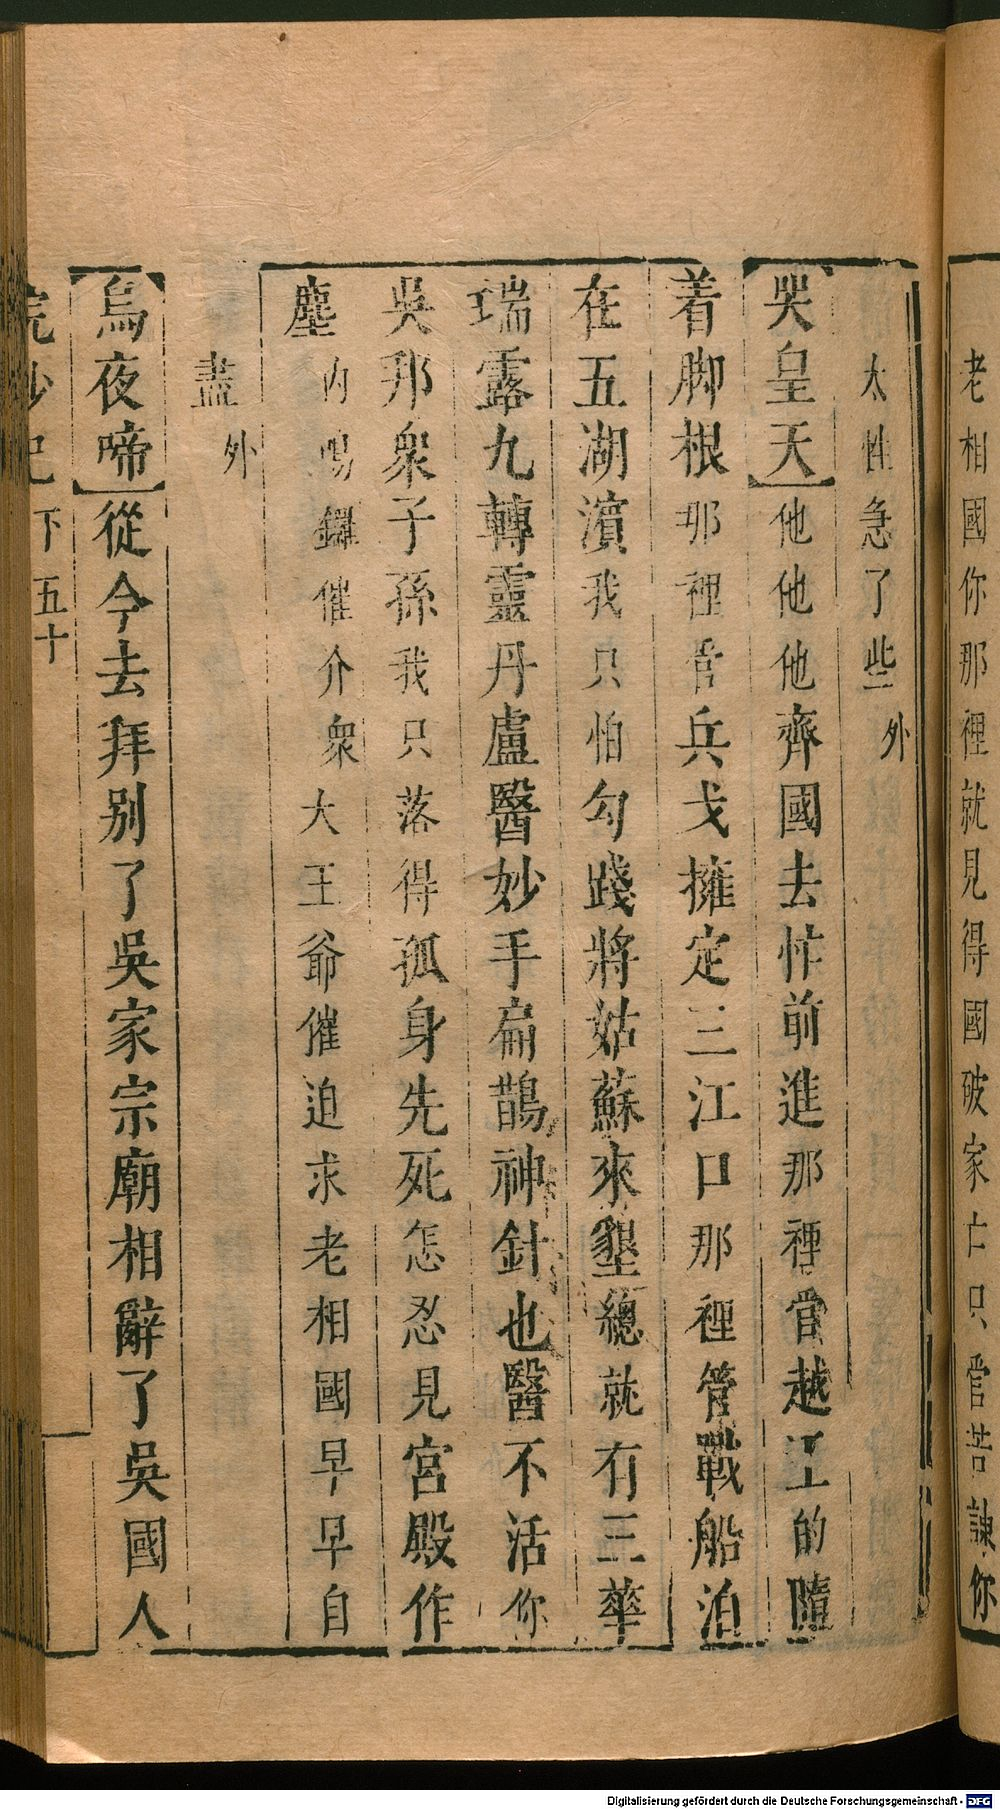 老相國你那裡就見得國破家亡只管苦諫你
太性急了些外
哭皇天他他他齊國去怍前進那裡當越江的隨
着脚根那裡管兵戈擁定三江口那裡管戰船泊
在五湖濵我只怕勾踐將姑蘇來墾總就有三華
瑞露九轉靈丹盧醫妙手扁鵲神針也醫不活你
吳邦衆子孫我只落得孤身先死怎忍見宮殿作
塵内喝鑼催介衆大王爺催迫求老相國早早自
盡外
烏夜啼從今去拜别了吳家宗廟相辭了吳國人
浣紗記下五十
Digitalisierung gefördert durch die Deutsche Forschungsgemeinschaft - DFG